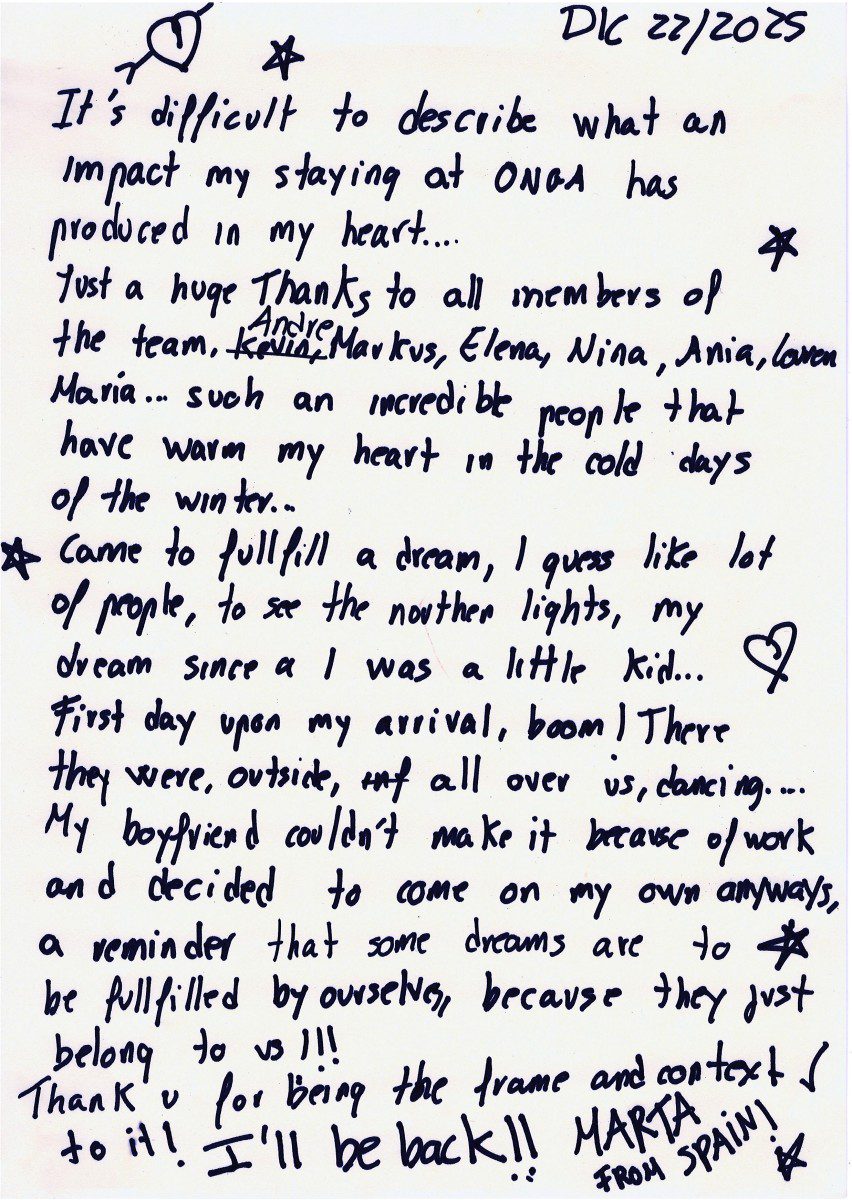 DIC 22/2025
It's difficult to describe what an
impact my staying at ONGA has
produced in my heart....
Just a huge Thanks to all members of
Andre
the team, Kevin, Markus, Elena, Nina, Ania, Loren
María... such an incredible people that
have warm my heart in the cold days
of the winter...
Came to fullfill a dream, I guess like lot
of people, to see the northen lights, my
dream since a I was a little kid...
First day upon my arrival, boom! There
they were, outside, all over us, dancing....
My boyfriend couldn't make it because of work
and decided to come on my own anyways,
a reminder that some dreams are to
be fullfilled by ourselves, because they just
belong to us!!!
Thank u for being the frame and context
to it! I'll be back!!
MARTA
FROM SPAIN!